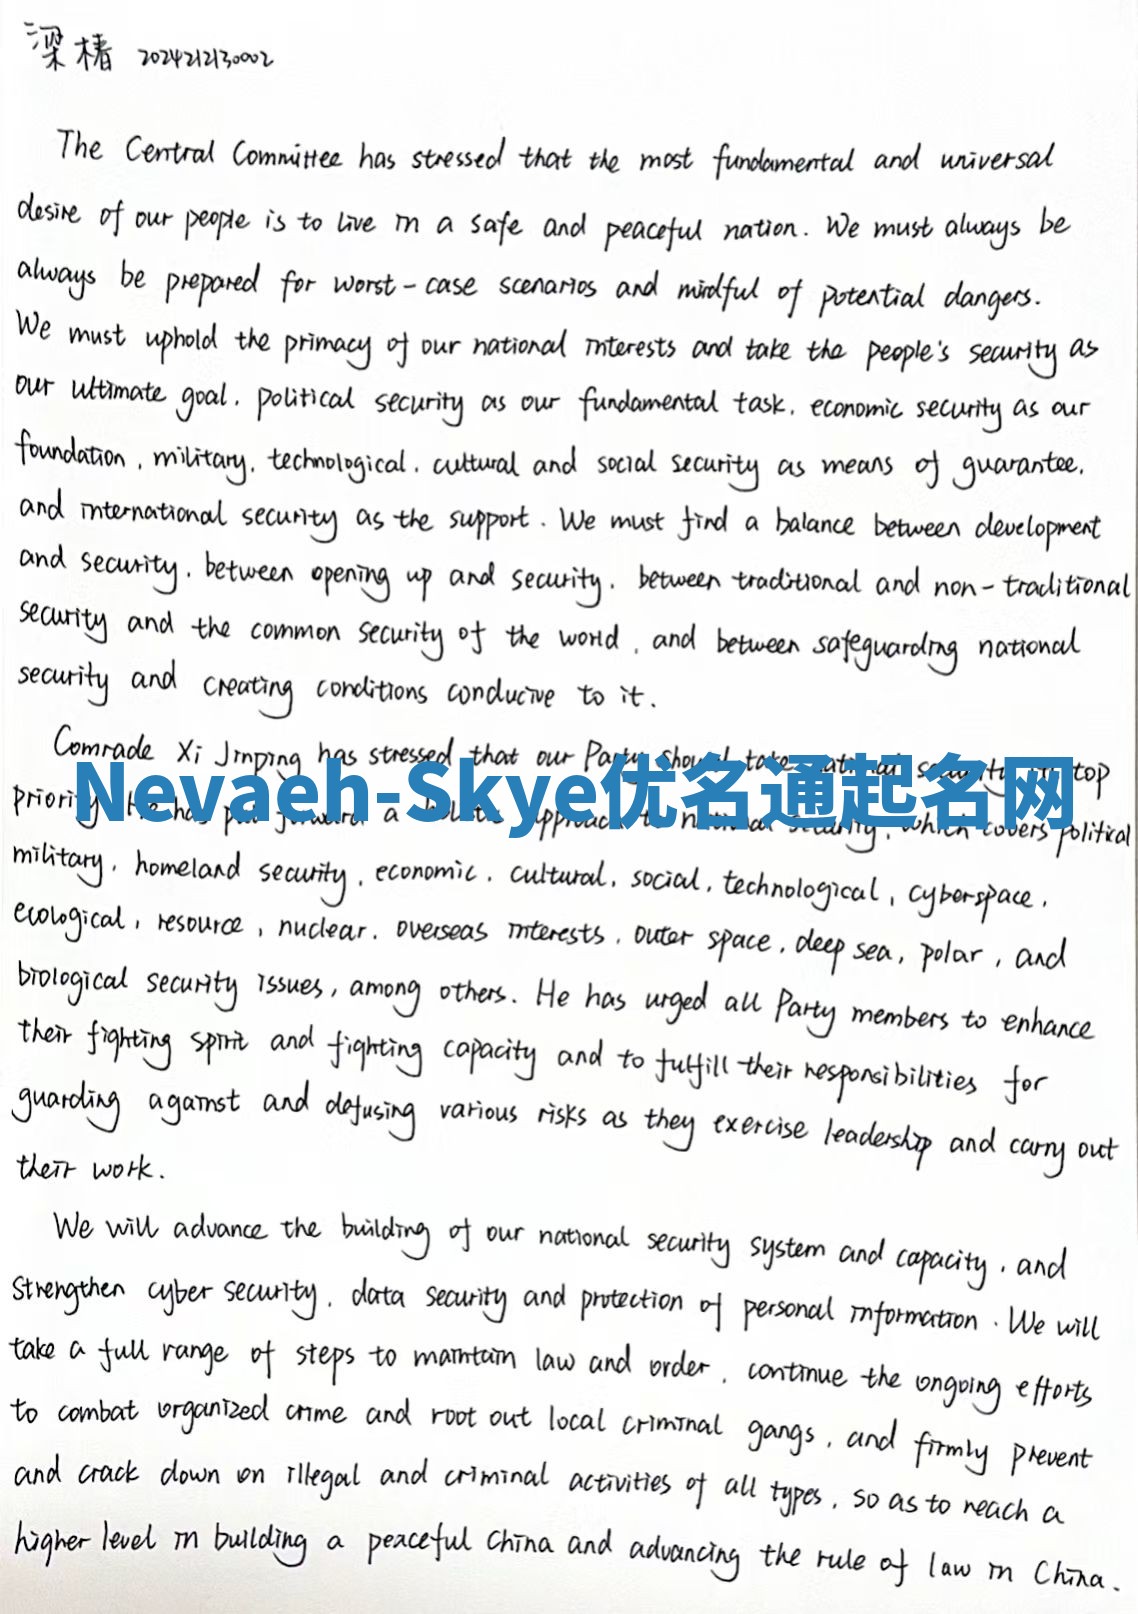 梁椿 2024212130002
The Central Committee has stressed that the most fundamental and universal
desire of our people is to live in a safe and peaceful nation. We must always be
always be prepared for worst-case scenarios and mindful of potential dangers.
We must uphold the primacy of our national interests and take the people's security as
our ultimate goal, political security as our fundamental task, economic security as our
foundation, military, technological, cultural and social security as means of guarantee,
and international security as the support. We must find a balance between development
and security, between opening up and security, between traditional and non-traditional
security and the common security of the world, and between safeguarding national
security and creating conditions conducive to it.
Comrade Xi Jinping has stressed that our Party should take national security top
Nevaeh-Skye优名通起名网
priority. He has put forward a holistic approach to national security, which covers political
military, homeland security, economic, cultural, social, technological, cyberspace,
ecological, resource, nuclear, overseas interests, outer space, deep sea, polar, and
biological security issues, among others. He has urged all Party members to enhance
their fighting spirit and fighting capacity and to fulfill their responsibilities for
guarding against and defusing various risks as they exercise leadership and carry out
their work.
We will advance the building of our national security system and capacity, and
strengthen cyber security, data security and protection of personal information. We will
take a full range of steps to maintain law and order, continue the ongoing efforts
to combat organized crime and root out local criminal gangs, and firmly prevent
and crack down on illegal and criminal activities of all types, so as to reach a
higher level in building a peaceful China and advancing the rule of law in China.